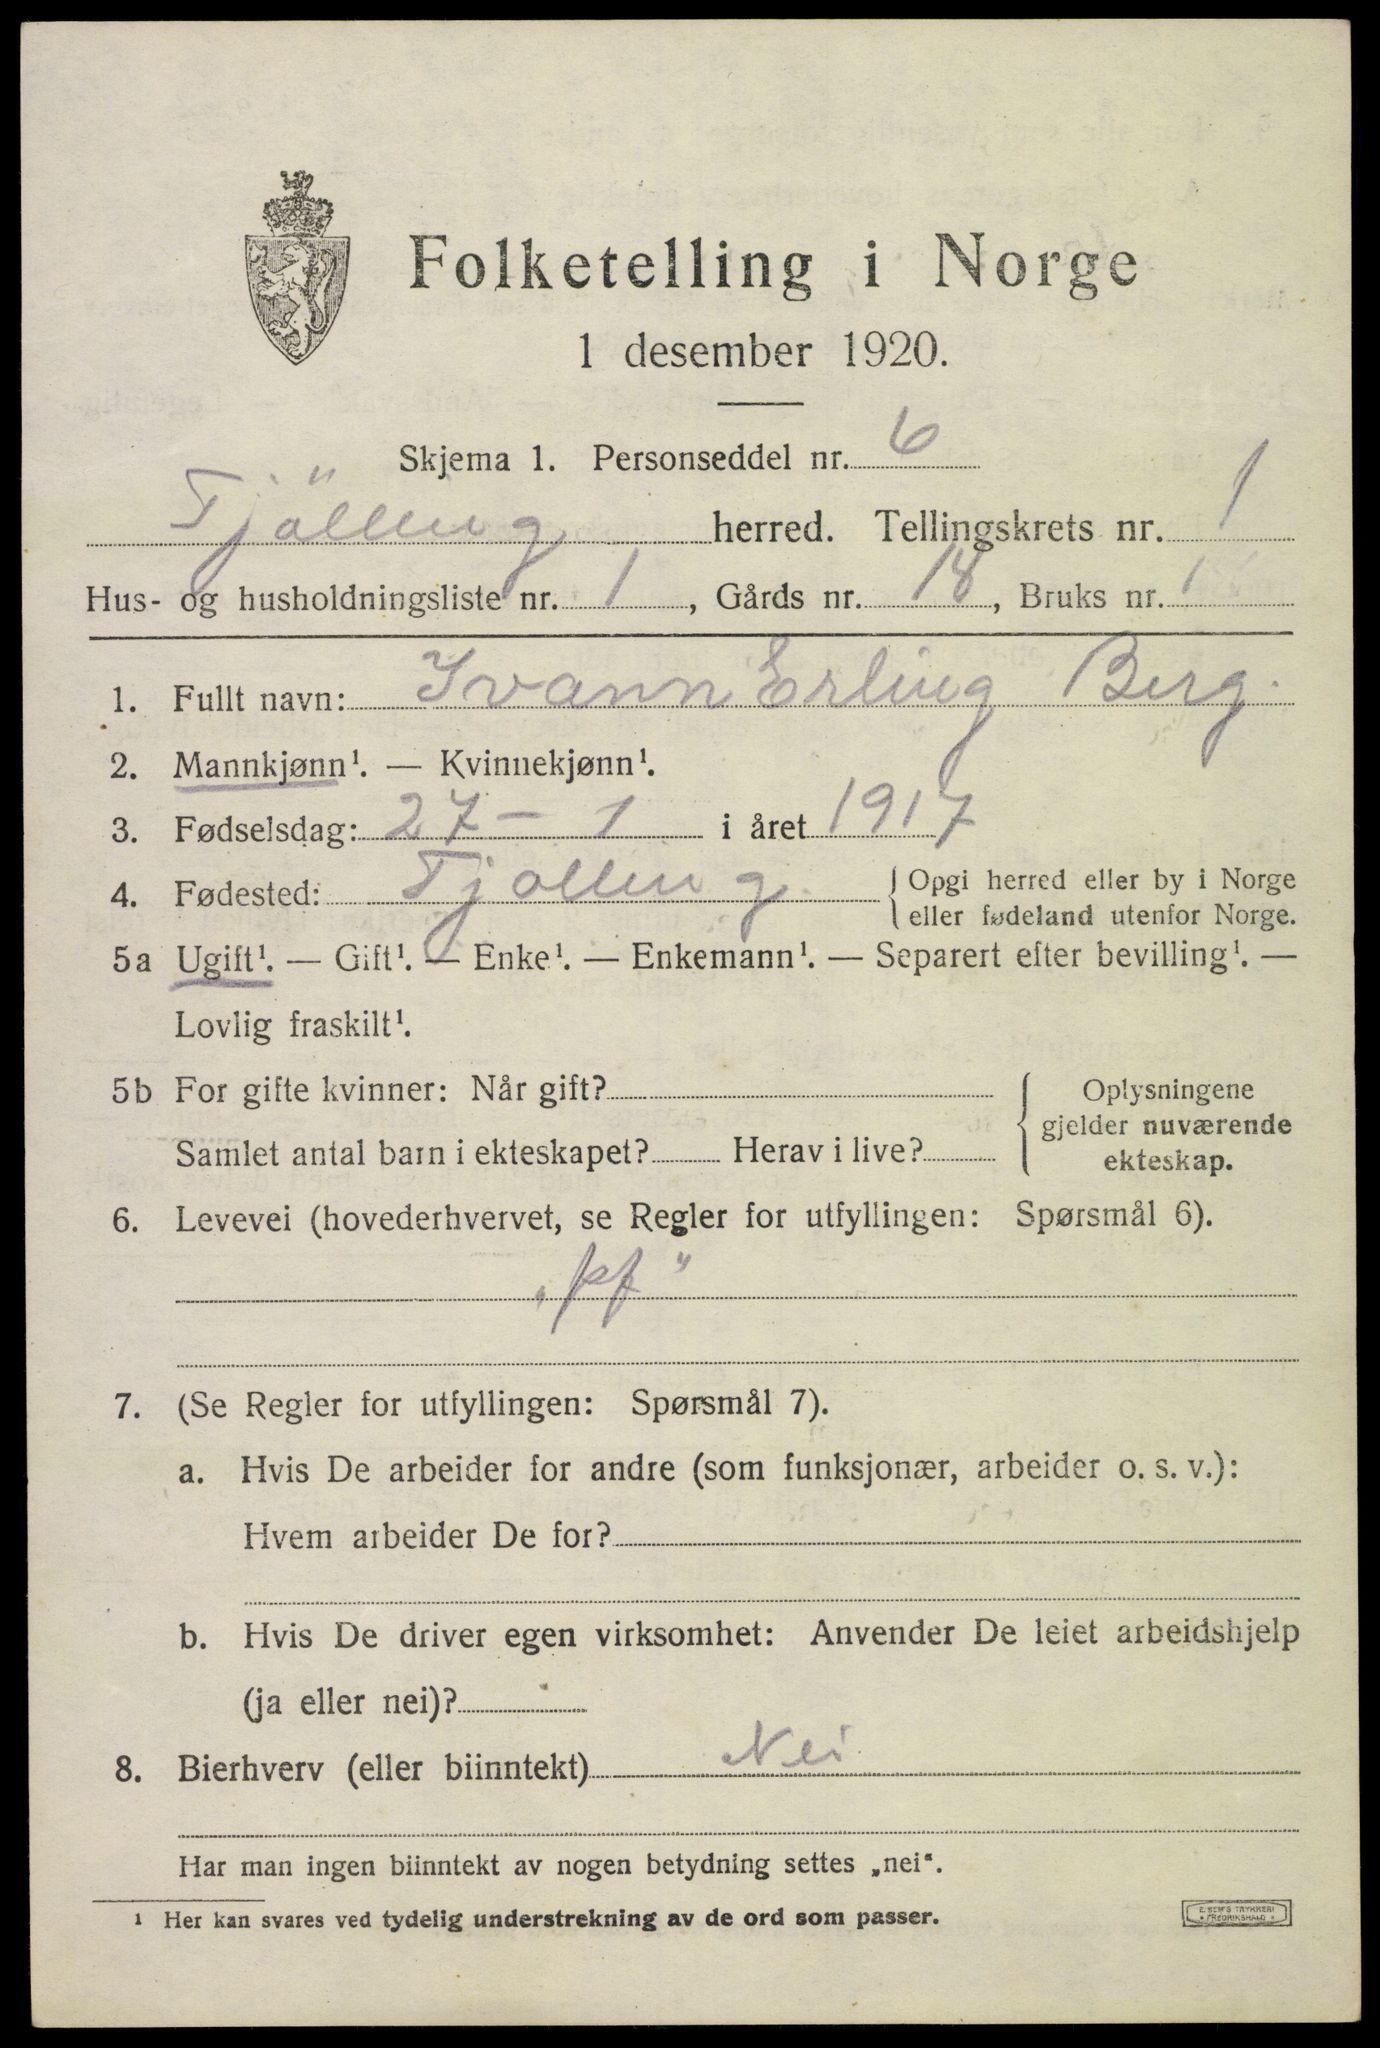 Folketelling i Norge
1 desember 1920.
Skjema 1. Personseddel nr. 6
Tjölling herred. Tellingskrets nr. 1
Hus- og husholdningsliste nr. 1, Gårds nr. 18, Bruks nr. 1
1. Fullt navn: Yvann Erling Berg.
2. Mannkjønn¹. — Kvinnekjønn¹.
3. Fødselsdag: 27 – 1 i året 1917
4. Fødested: Tjölling { Opgi herred eller by i Norge
eller fødeland utenfor Norge.
5a Ugift¹. — Gift¹. — Enke¹. — Enkemann¹. — Separert efter bevilling¹. —
Lovlig fraskilt¹.
5b For gifte kvinner: Når gift? { Oplysningene
gjelder nuværende
Samlet antal barn i ekteskapet? Herav i live? ekteskap.
6. Levevei (hovederhvervet, se Regler for utfyllingen: Spørsmål 6).
„pf"
7. (Se Regler for utfyllingen: Spørsmål 7).
a. Hvis De arbeider for andre (som funksjonær, arbeider o. s. v.):
Hvem arbeider De for?
b. Hvis De driver egen virksomhet: Anvender De leiet arbeidshjelp
(ja eller nei)?
8. Bierhverv (eller biinntekt) Nei
Har man ingen biinntekt av nogen betydning settes „nei“.
¹ Her kan svares ved tydelig understrekning av de ord som passer.
E. SEM'S TRYKKERI
* FREDRIKSHALD *